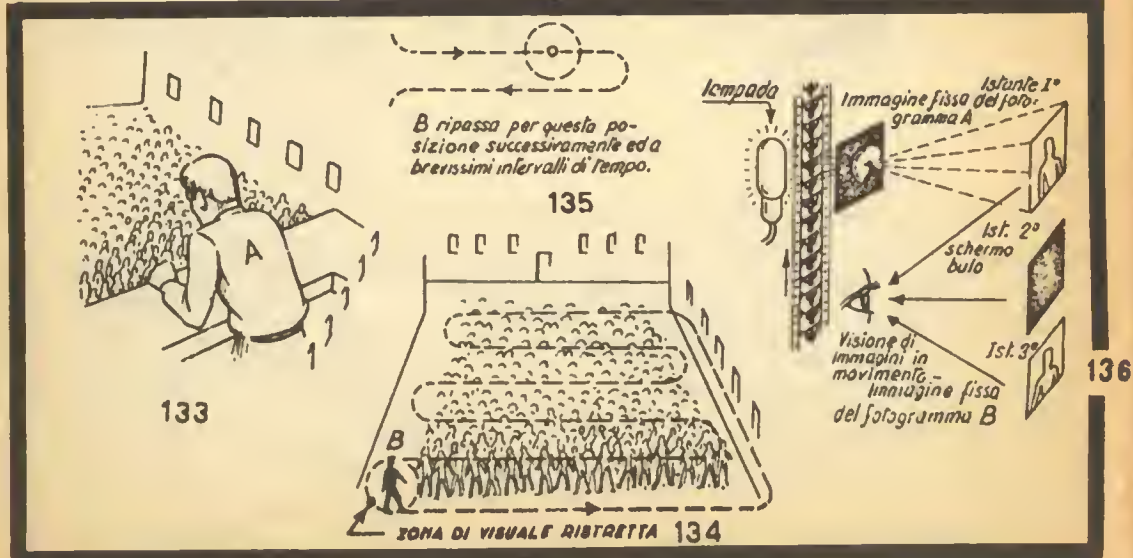 A
133
B ripassa per questa po-
sizione successivamente ed a
brevissimi intervalli di tempo.
135
B
ZONA DI VISUALE RISTRETTA 134
lampada
Istante 1°
Immagine fissa del foto-
gramma A
Ist. 2°
schermo
buio
Ist. 3°
Visione di
immagini in
movimento –
Immagine fissa
del fotogramma B
136